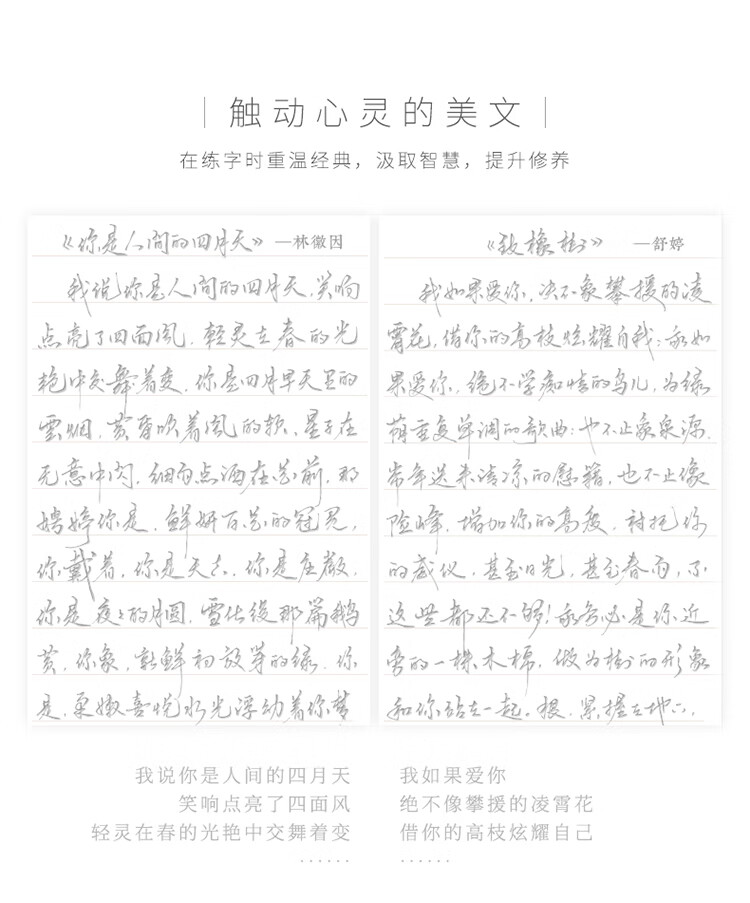 触动心灵的美文
在练字时重温经典，汲取智慧，提升修养
《你是人间的四月天》—林徽因
我说你是人间的四月天，笑响
点亮了四面风，轻灵在春的光
艳中交舞着变。你是四月早天里的
雲烟，黄昏吹着风的软，星子在
无意中闪，细雨点洒在花前。那
娉婷你是，鲜妍百花的冠冕，
你戴着，你是天真，庄严，
你是夜夜的月圆。雪化後那篇鹅
黄，你象，新鲜初放芽的绿，你
是，柔嫩喜悦水光浮动着你梦
《致橡树》—舒婷
我如果爱你，决不象攀援的凌
霄花，借你的高枝炫耀自我：我如
果爱你，绝不学痴情的鸟儿，为绿
荫重复单调的歌曲：也不止象泉源，
常年送来清凉的慰籍，也不止像
险峰，增加你的高度，衬托你
的威仪，甚至日光，甚至春雨，不
这些都还不够！我必须是你近
旁的一株木棉，做为树的形象
和你站在一起。根，紧握在地下，
我说你是人间的四月天
笑响点亮了四面风
轻灵在春的光艳中交舞着变
······
我如果爱你
绝不像攀援的凌霄花
借你的高枝炫耀自己
······